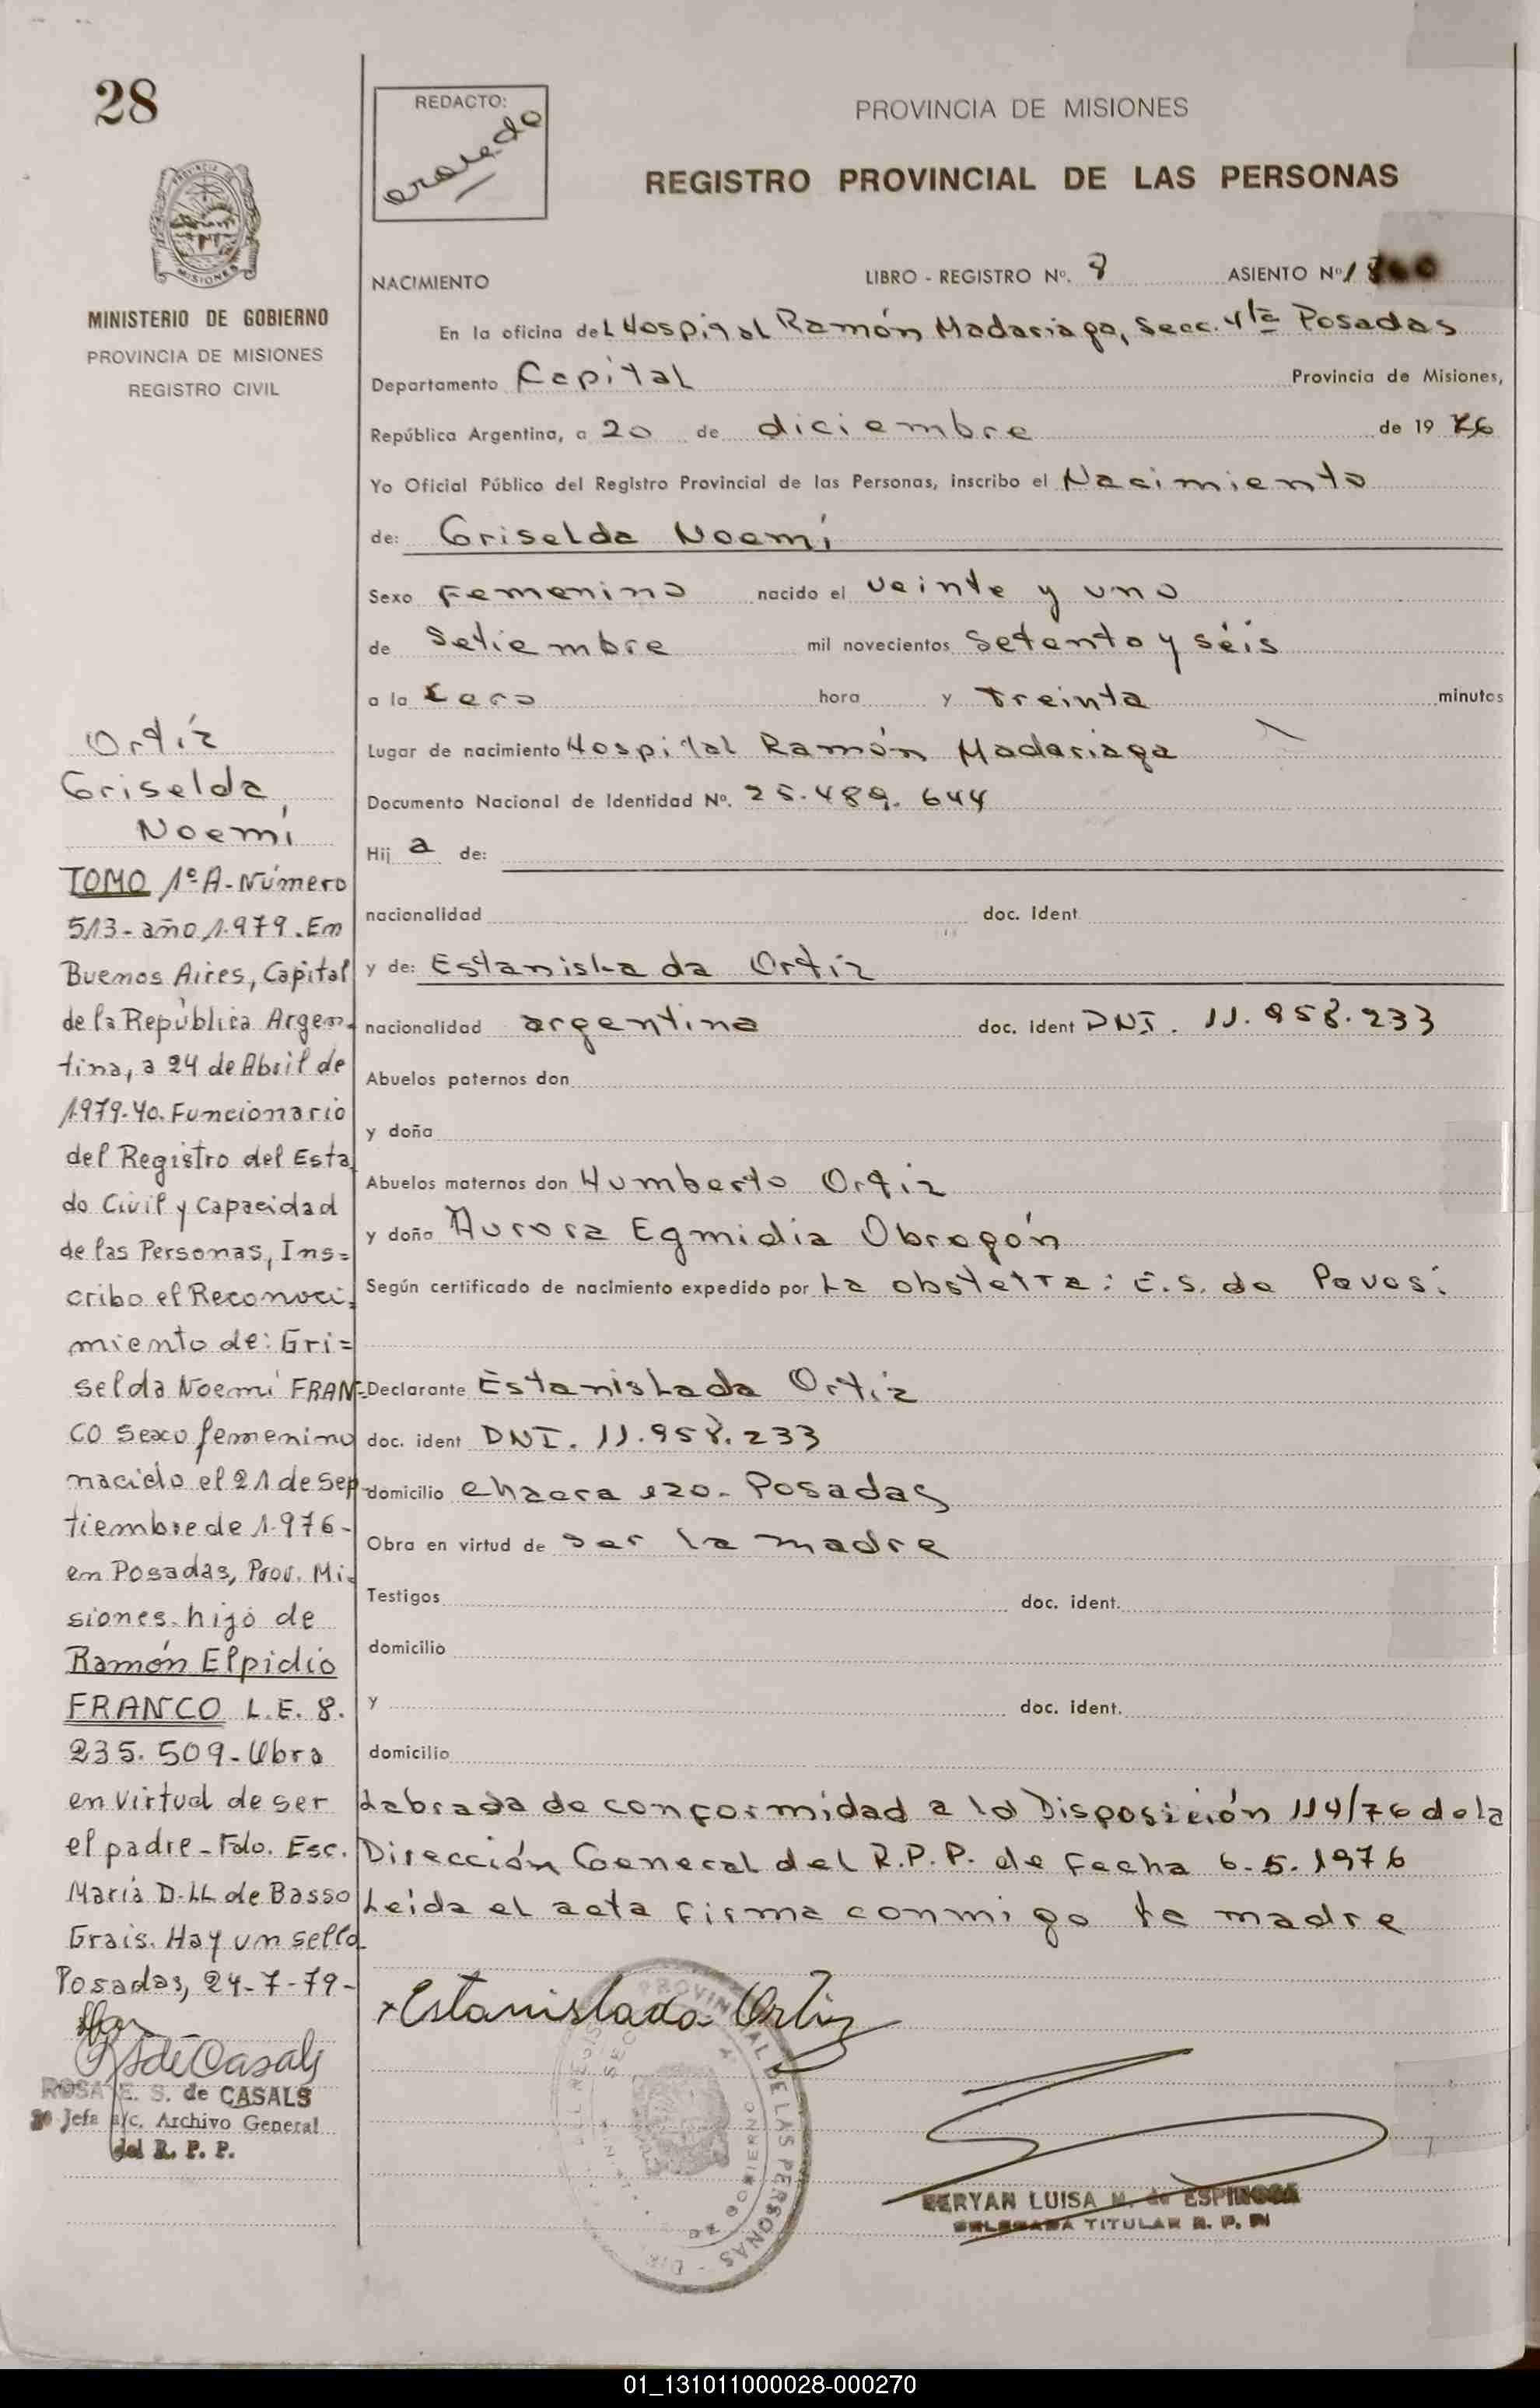 28
REDACTO:
PROVINCIA DE MISIONES
REGISTRO PROVINCIAL DE LAS PERSONAS
MISIONES
MINISTERIO DE GOBIERNO
PROVINCIA DE MISIONES
REGISTRO CIVIL
NACIMIENTO LIBRO - REGISTRO Nº. 8 ASIENTO Nº
En la oficina del Hospital Ramón Madariaga, Secc. 4ta Posadas
Departamento Capital Provincia de Misiones,
República Argentina, a 20 de diciembre de 19 76
Yo Oficial Público del Registro Provincial de las Personas, inscribo el Nacimiento
de: Griselda Noemí
Sexo Femenino nacido el veinte y uno
de Setiembre mil novecientos Setenta y séis
a la Cero hora y Treinta minutos
Lugar de nacimiento Hospital Ramón Madariaga
Documento Nacional de Identidad Nº. 25.489.644
Hij a de:
nacionalidad doc. Ident
y de: Estanislada Ortíz
nacionalidad argentina doc. Ident DNI. 11.958.233
Abuelos paternos don
y doña
Abuelos maternos don Humberto Ortiz
y doña Aurora Egmidia Obregón
Según certificado de nacimiento expedido por La obstetra: E.S. de Pavesi
Declarante Estanislada Ortíz
doc. ident DNI. 11.958.233
domicilio chacra 120- Posadas
Obra en virtud de ser la madre
Testigos doc. ident.
domicilio
y doc. ident.
domicilio
Labrada de conformidad a la Disposición 114/76 de la
Dirección General del R.P.P. de Fecha 6.5.1976
Leída el acta firma conmigo la madre
Estanislada Ortiz
Ortíz
Griselda
Noemí
TOMO 1º A- Número
513- año 1.979. En
Buenos Aires, Capital
de la República Argen-
tina, a 24 de Abril de
1.979. Yo. Funcionario
del Registro del Esta
do Civil y Capacidad
de las Personas, Ins=
cribo el Reconoci=
miento de: Gri=
selda Noemí FRAN=
CO sexo femenino
nacido el 21 de Sep-
tiembre de 1.976-
en Posadas, Prov. Mi=
siones- hijo de
Ramón Elpidio
FRANCO L.E. 8.
235.509- Obra
en virtud de ser
el padre- Fdo. Esc.
María D. LL de Basso
Grais. Hay un sello
Posadas, 24-7-79-
RSdeCasals
ROSA E. S. de CASALS
Jefa a/c. Archivo General
del R. P. P.
PROVINCIAL DE LAS PERSONAS
LUISA M. de ESPINOSA
DELEGADA TITULAR R. P. P.
01_131011000028-000270